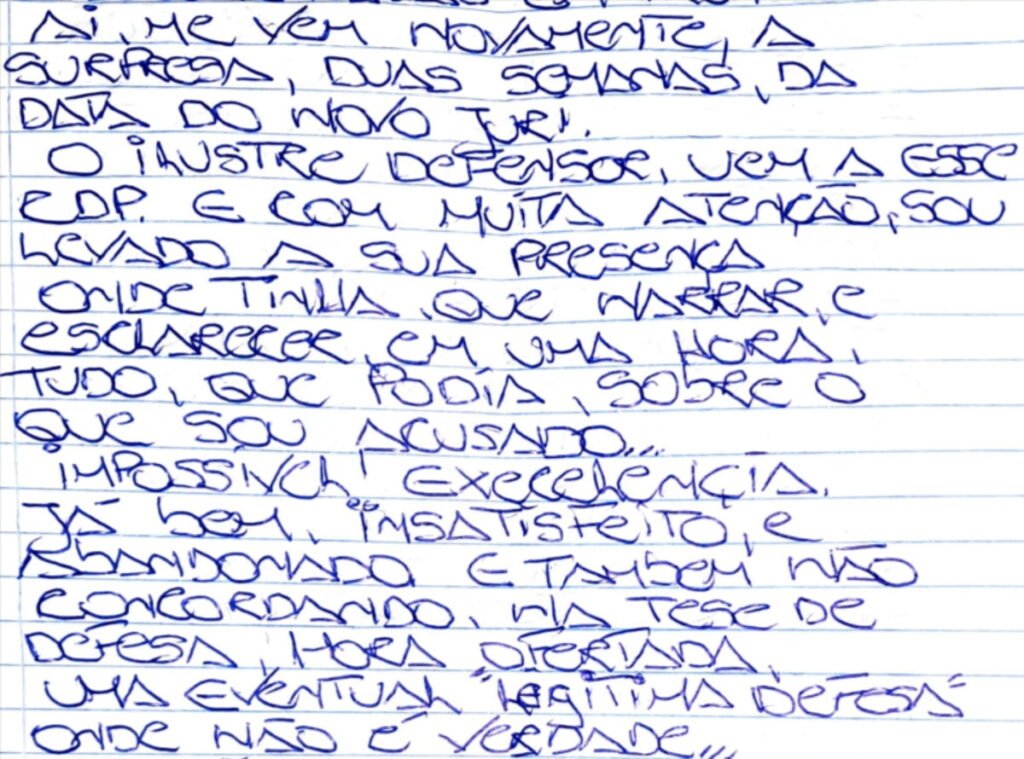 AÍ, ME VEM NOVAMENTE, A
SURPRESA, DUAS SEMANAS, DA
DATA DO NOVO JURI.
O ILUSTRE DEFENSOR, VEM A ESSE
CDP. E COM MUÍTA ATENÇÃO, SOU
LEVADO A SUA PRESENÇA
ONDE TINHA, QUE NARRAR, E
ESCLARECER, EM UMA HORA,
TUDO, QUE PODÍA, SOBRE O
QUE SOU ACUSADO...
IMPOSSIVEL! EXECELENÇÍA.
JÁ BEM, INSATISFEITO, E
ABANDONADO. E TAMBEM NÃO
CONCORDANDO, NA TESE DE
DEFESA, HORA OFERTADA,
UMA EVENTUAL "LEGITIMA DEFESA"
ONDE NÃO É VERDADE...